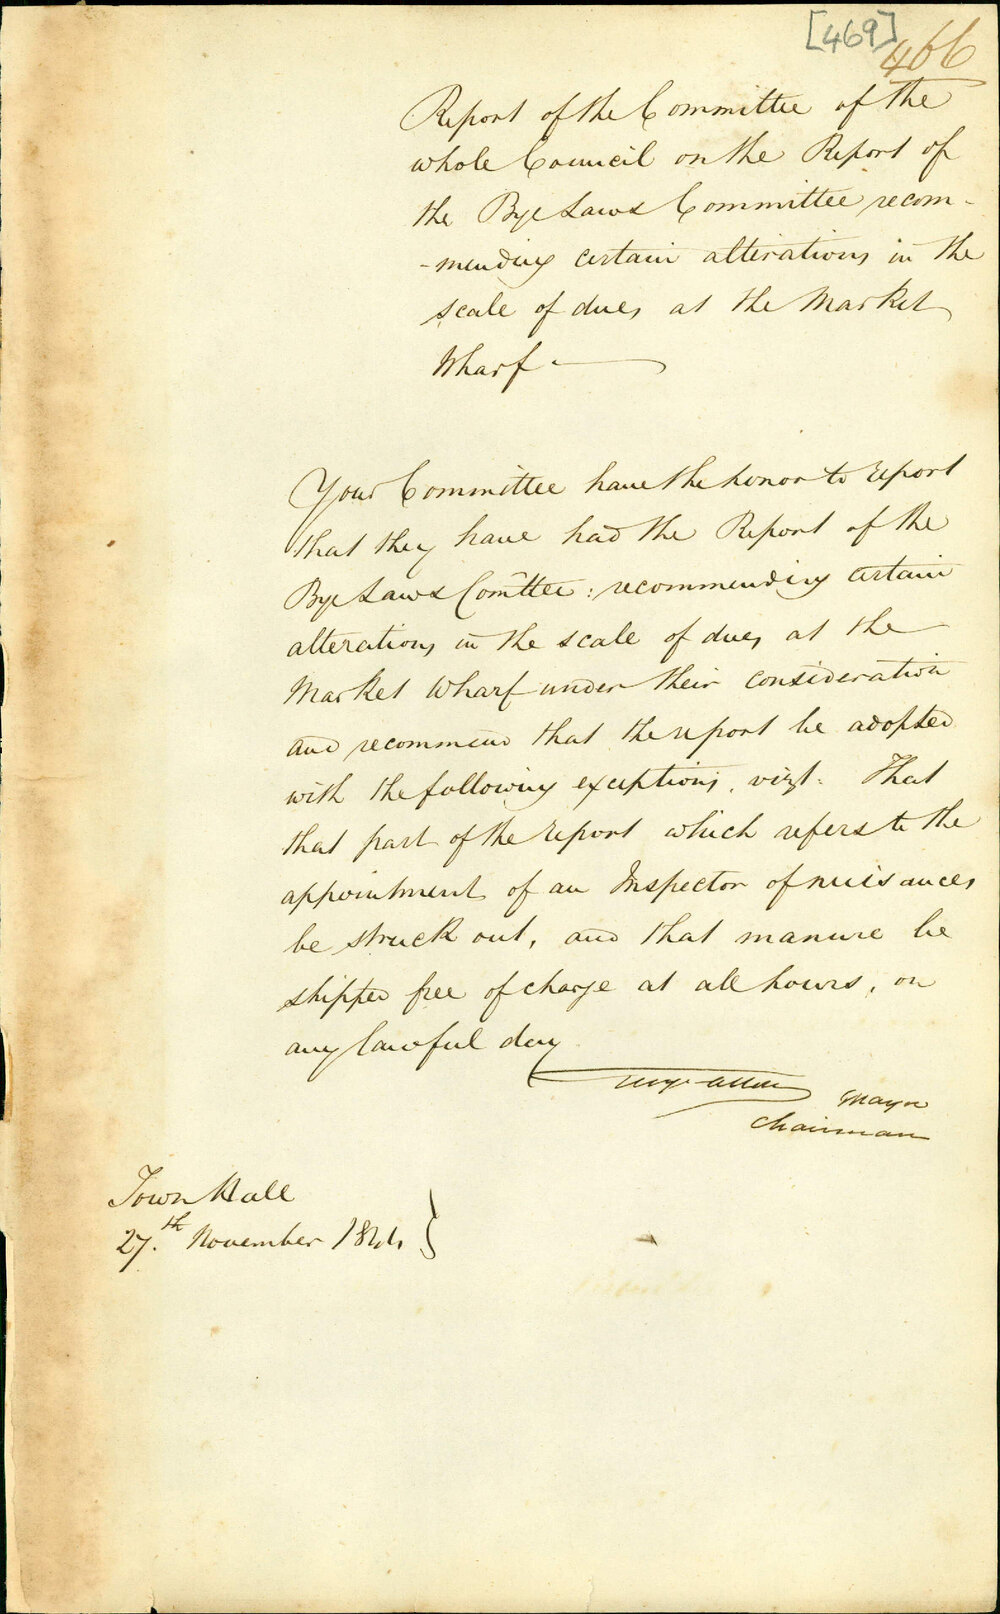 [469]
466
Report of the Committee of the
whole Council on the Report of
the Bye Laws Committee recom-
-mending certain alterations in the
scale of dues at the Market
Wharf
Your Committee have the honor to report
that they have had the Report of the
Bye Laws Comttee: recommending certain
alterations in the scale of dues at the
Market Wharf under their consideration
and recommend that the report be adopted
with the following exceptions, vizt. That
that part of the report which refers to the
appointment of an Inspector of nuisances
be struck out, and that manure be
shipped free of charge at all hours, on
any lawful day
Mayor
Chairman
Town Hall
27.th November 1844